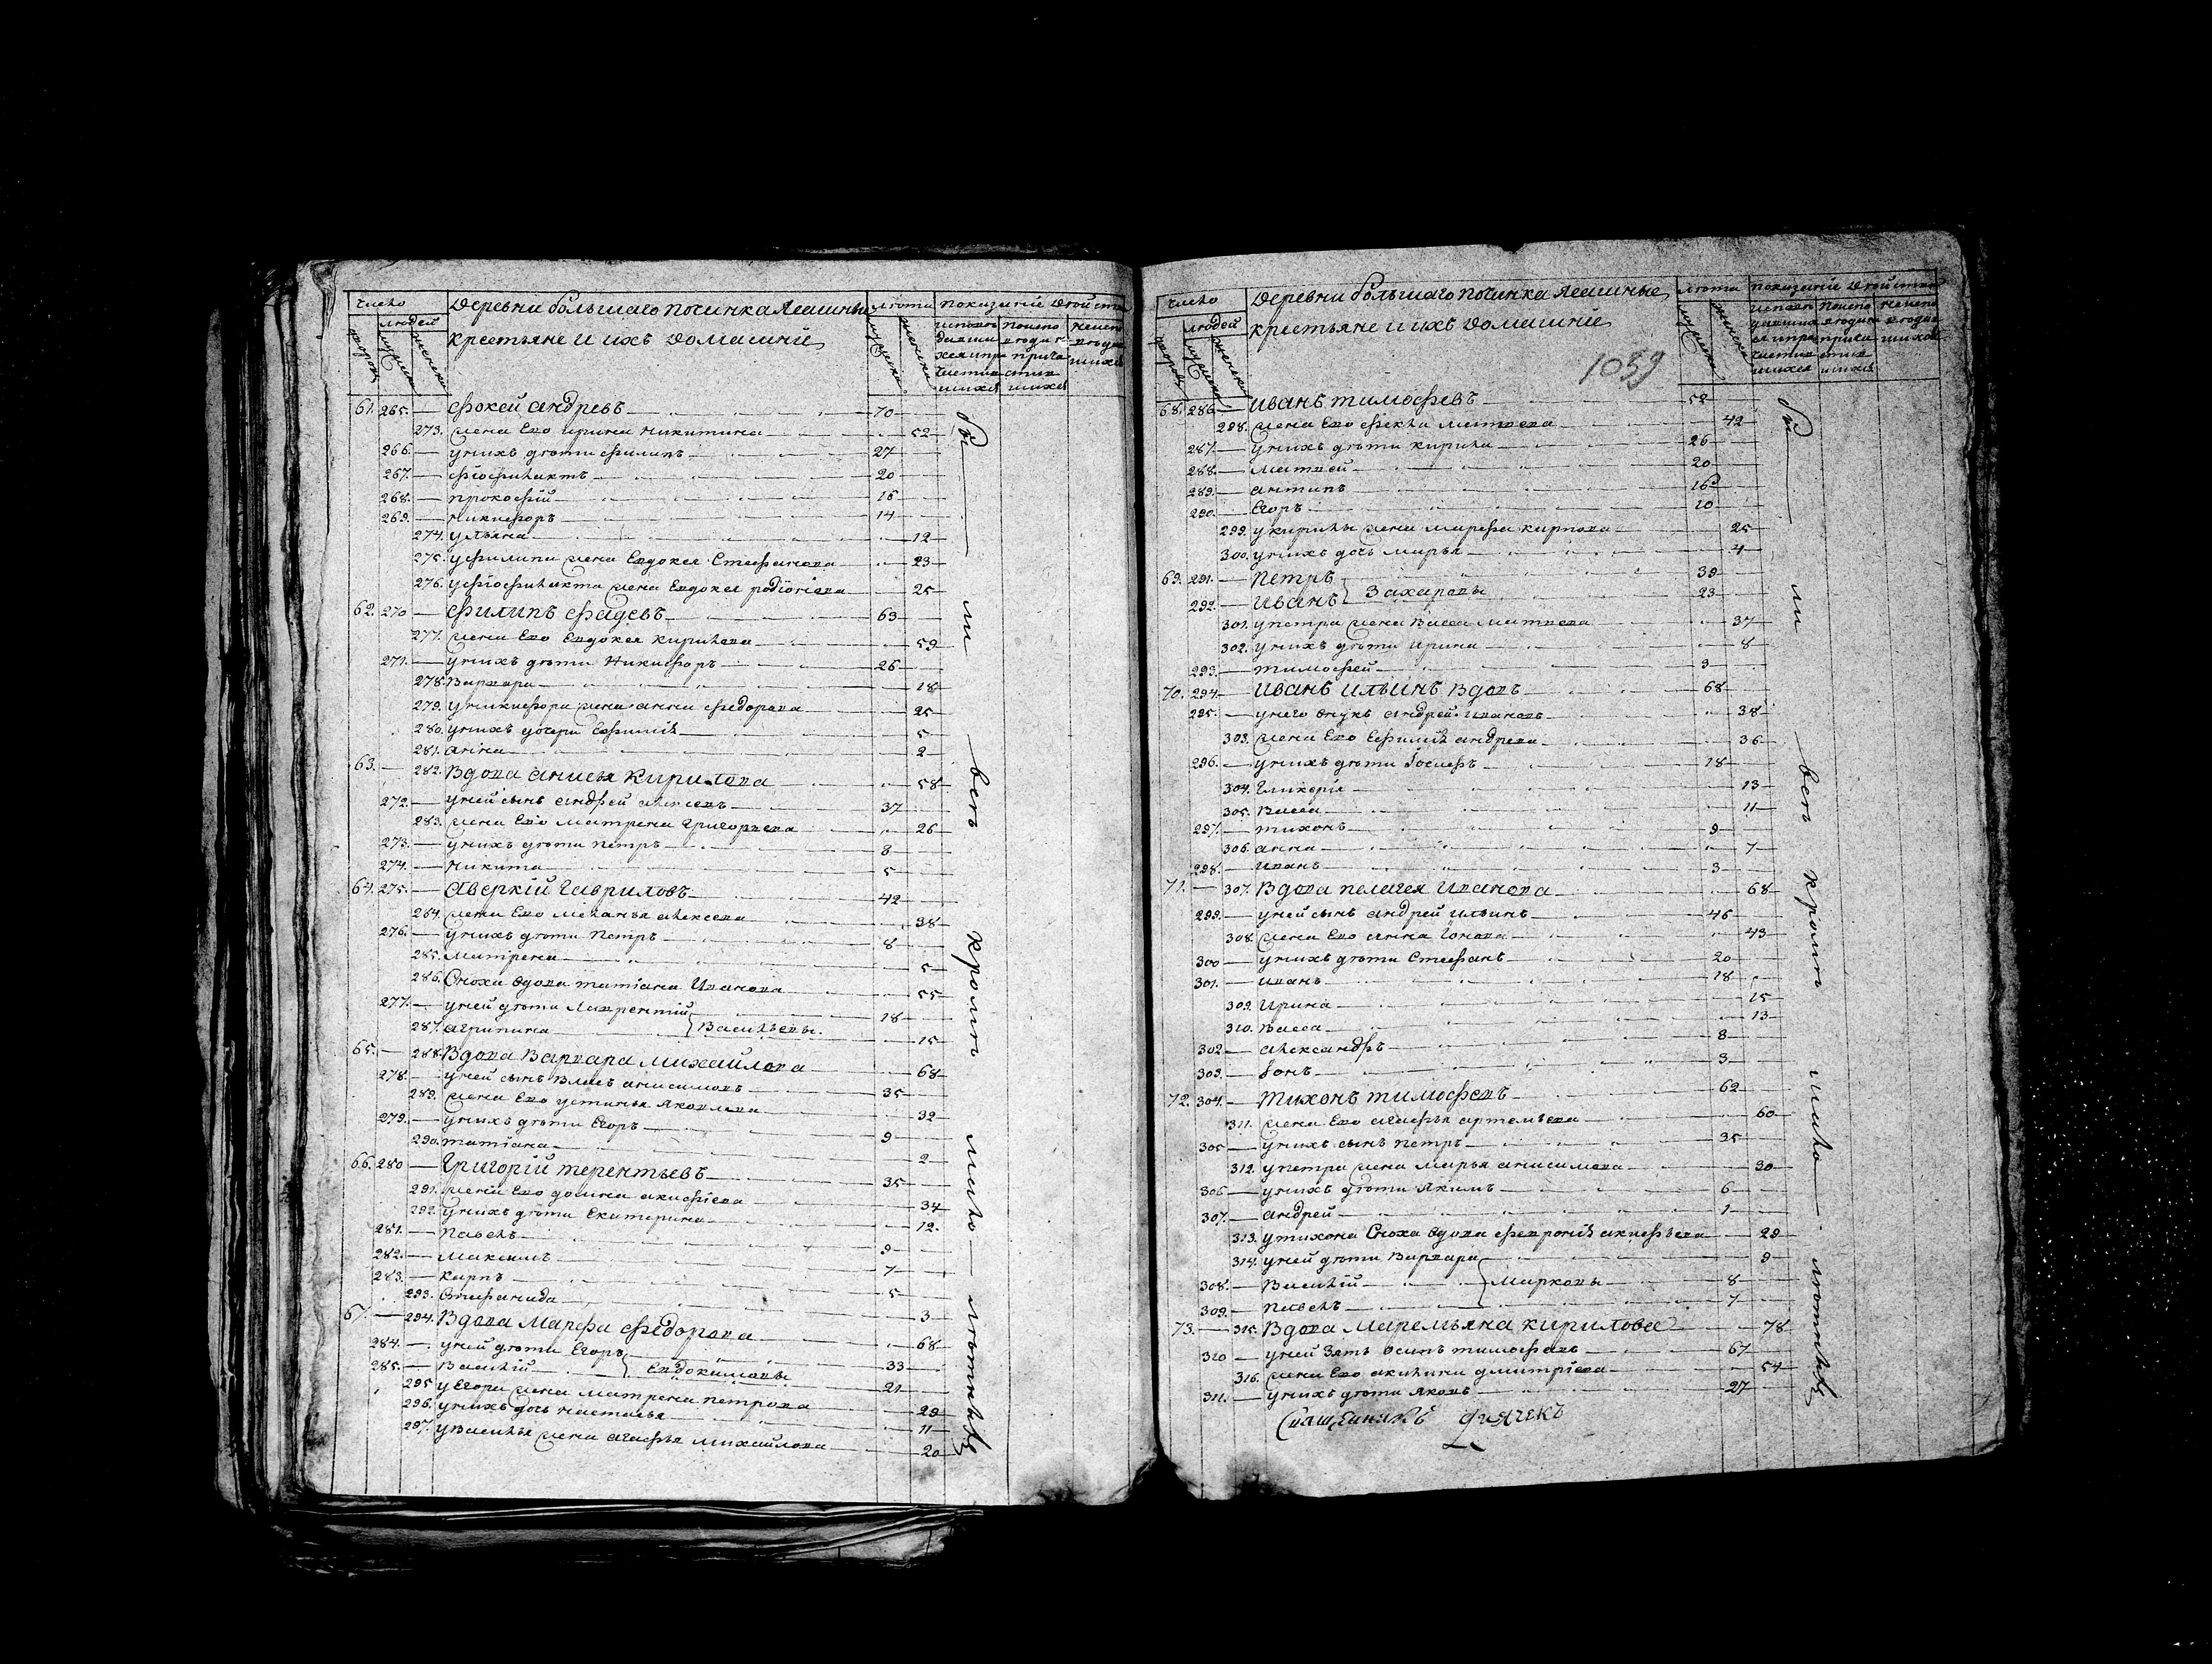 число
людей
дворовъ
мужска
женска
Деревни большаго починка Леашныя
крестьяне и ихъ домашнїи
лѣта
мужска
женска
показанїе двойства
61. 265. — Фокей андревъ — 70
273. жена Ево ирина никитина — 52
266. — унихъ дѣти филипъ — 27
267. — фїофилактъ — 20
268. — прокофїй — 16
269. — никифоръ — 14
274. ульяна — 12
275. уфилипа жена Евдокея Стефанова — 23
276. уфїофилакта жена Евдокея родїонїева — 25
62. 270 — Филипъ Фадеевъ — 63
277. жена Ево Евдокея кирилова — 59
271. — унихъ дѣти Никифоръ — 26
278. Варвара — 18
279. уникифора жена анна федорова — 25
280. унихъ дочери Ефимїя — 5
281. анна — 2
63. — 282. Вдова анисья Кирилова — 58
272. — уней сынъ андрей алексеевъ — 37
283. жена Ево матрена григорьева — 26
273. — унихъ дѣти петръ — 8
274. — никита — 5
64. 275. — Аверкїй Гавриловъ — 42
284. жена Ево меланья алексеева — 38
276. — унихъ дѣти Петръ — 8
285. матрена — 5
286. Сноха вдова татїана Иванова — 55
277. — уней дѣти Лаврентїй — 18
287. агрипина } Васильевы. — 15
65. — 288. Вдова Варвара Михайлова — 68
278. уней сынъ Власъ анисимовъ — 35
289. жена Ево устинья Яковлева — 32
279. — унихъ дѣти Егоръ — 9
290. татїана — 2
66. 280 — Григорїй терентьевъ — 35
291. жена Ево домна акифїева — 34
292. унихъ дѣти Екатерина — 12.
281. — Павелъ — 9
282. — Максимъ — 7
283. — карпъ — 5
293. Стефанида — 3
67. — 294. Вдова Марфа Федорова — 68
284. — уней дѣти Егоръ — 33
285. — Василїй } Евдокимовы — 21
295 уЕгора жена матрена петрова — 29
296. унихъ дочь настасья — 11
297. уВасилья жена агафья михайлова — 20
бы — ли всѣ кромѣ мало — лѣтныхъ
число
людей
дворовъ
мужска
женска
Деревни большаго починка Леашные
крестьяне и ихъ домашнїи
1059
лѣта
мужска
женска
показанїе двойства
68. 286. — иванъ тимофевъ — 52
298. жена Ево фекла матвеева — 42
287. — унихъ дѣти кирила — 26
288. — матвей — 20
289. — антипъ — 16
290. — Егоръ — 10
299. укирилы жена марфа карпова — 25
300. унихъ дочь марья — 4
69. 291. — Петръ — 39
292. — Иванъ } Захаровы — 23
301. упетра жена васса матвеева — 37
302. унихъ дѣти ирина — 8
293. — тимофей — 3
70. 294. — Иванъ ильинъ вдовъ — 68
295. — унего внукъ андрей ивановъ — 38
303. жена Ево Ефимїя андреева — 36
296. — унихъ дѣти їосифъ — 18
304. Гликерїя — 13
305. Васса — 11
297. — тихонъ — 9
306. анна — 7
298. иванъ — 3
71. — 307. Вдова пелагея Иванова — 68
299. — уней сынъ андрей ильинъ — 46
308. жена Ево анна їонова — 43
300 — унихъ дѣти Стефанъ — 20
301. — иванъ — 18
309. Ирина — 15
310. Васса — 13
302 — александръ — 8
303. — їонъ — 3
72. 304. — Тихонъ тимофевъ — 62
311. жена Ево агафья артемьева — 60
305 — унихъ сынъ петръ — 35
312. упетра жена марья анисимова — 30
306 — унихъ дѣти Якимъ — 6
307. — андрей — 1
313. утихона Сноха вдова февронїя акифьева — 29
314. уней дѣти Варвара — 9
308. — Василїй } Марковы — 8
309. — Павелъ — 7
73. — 315. Вдова Маремьяна кирилова — 78
310 — уней Зять Осипъ тимофевъ — 67
316. жена Ево акилина дмитрїева — 54
311. — унихъ дѣти яковъ — 27
бы — ли всѣ кромѣ мало — лѣтныхъ
Свящѣнникъ дїячекъ